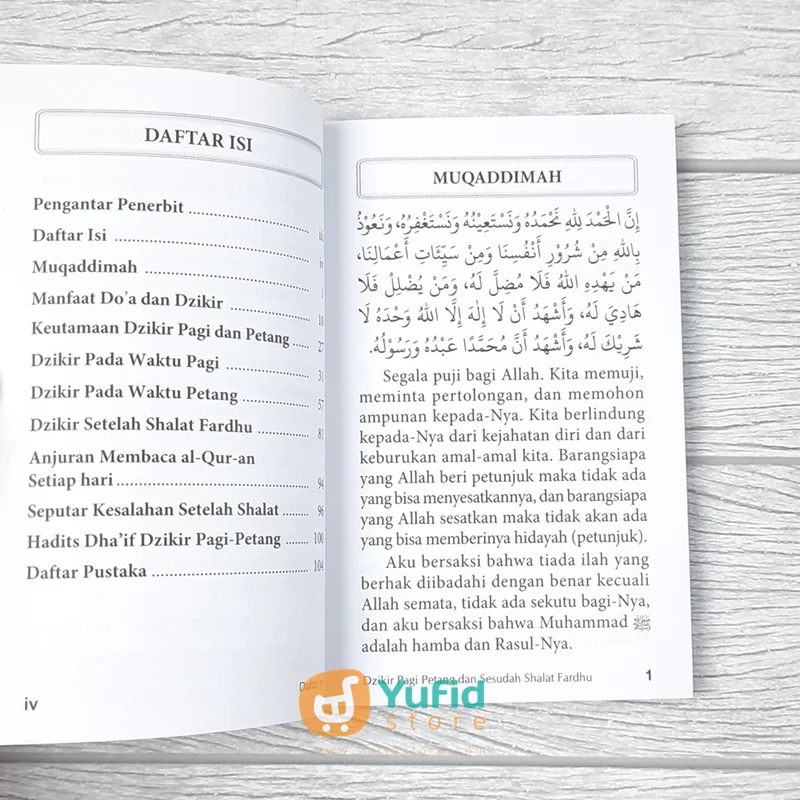 DAFTAR ISI
Pengantar Penerbit .................... iii
Daftar Isi .................... iv
Muqaddimah .................... 1
Manfaat Do'a dan Dzikir .................... 10
Keutamaan Dzikir Pagi dan Petang ..... 27
Dzikir Pada Waktu Pagi .................... 31
Dzikir Pada Waktu Petang .................... 57
Dzikir Setelah Shalat Fardhu .................... 81
Anjuran Membaca al-Qur-an
Setiap hari .................... 94
Seputar Kesalahan Setelah Shalat ....... 96
Hadits Dha'if Dzikir Pagi-Petang ...... 100
Daftar Pustaka .................... 104
iv
MUQADDIMAH
إِنَّ الْحَمْدَ لِلَّهِ نَحْمَدُهُ وَنَسْتَعِيْنُهُ وَنَسْتَغْفِرُهُ، وَنَعُوْذُ
بِاللهِ مِنْ شُرُوْرِ أَنْفُسِنَا وَمِنْ سَيِّئَاتِ أَعْمَالِنَا،
مَنْ يَهْدِهِ اللهُ فَلَا مُضِلَّ لَهُ، وَمَنْ يُضْلِلْ فَلَا
هَادِيَ لَهُ، وَأَشْهَدُ أَنْ لَا إِلٰهَ إِلَّا اللهُ وَحْدَهُ لَا
شَرِيْكَ لَهُ، وَأَشْهَدُ أَنَّ مُحَمَّدًا عَبْدُهُ وَرَسُوْلُهُ.
Segala puji bagi Allah. Kita memuji,
meminta pertolongan, dan memohon
ampunan kepada-Nya. Kita berlindung
kepada-Nya dari kejahatan diri dan dari
keburukan amal-amal kita. Barangsiapa
yang Allah beri petunjuk maka tidak ada
yang bisa menyesatkannya, dan barangsiapa
yang Allah sesatkan maka tidak akan ada
yang bisa memberinya hidayah (petunjuk).
Aku bersaksi bahwa tiada ilah yang
berhak diibadahi dengan benar kecuali
Allah semata, tidak ada sekutu bagi-Nya,
dan aku bersaksi bahwa Muhammad ﷺ
adalah hamba dan Rasul-Nya.
Dzikir Pagi Petang dan Sesudah Shalat Fardhu 1
Yufid
store